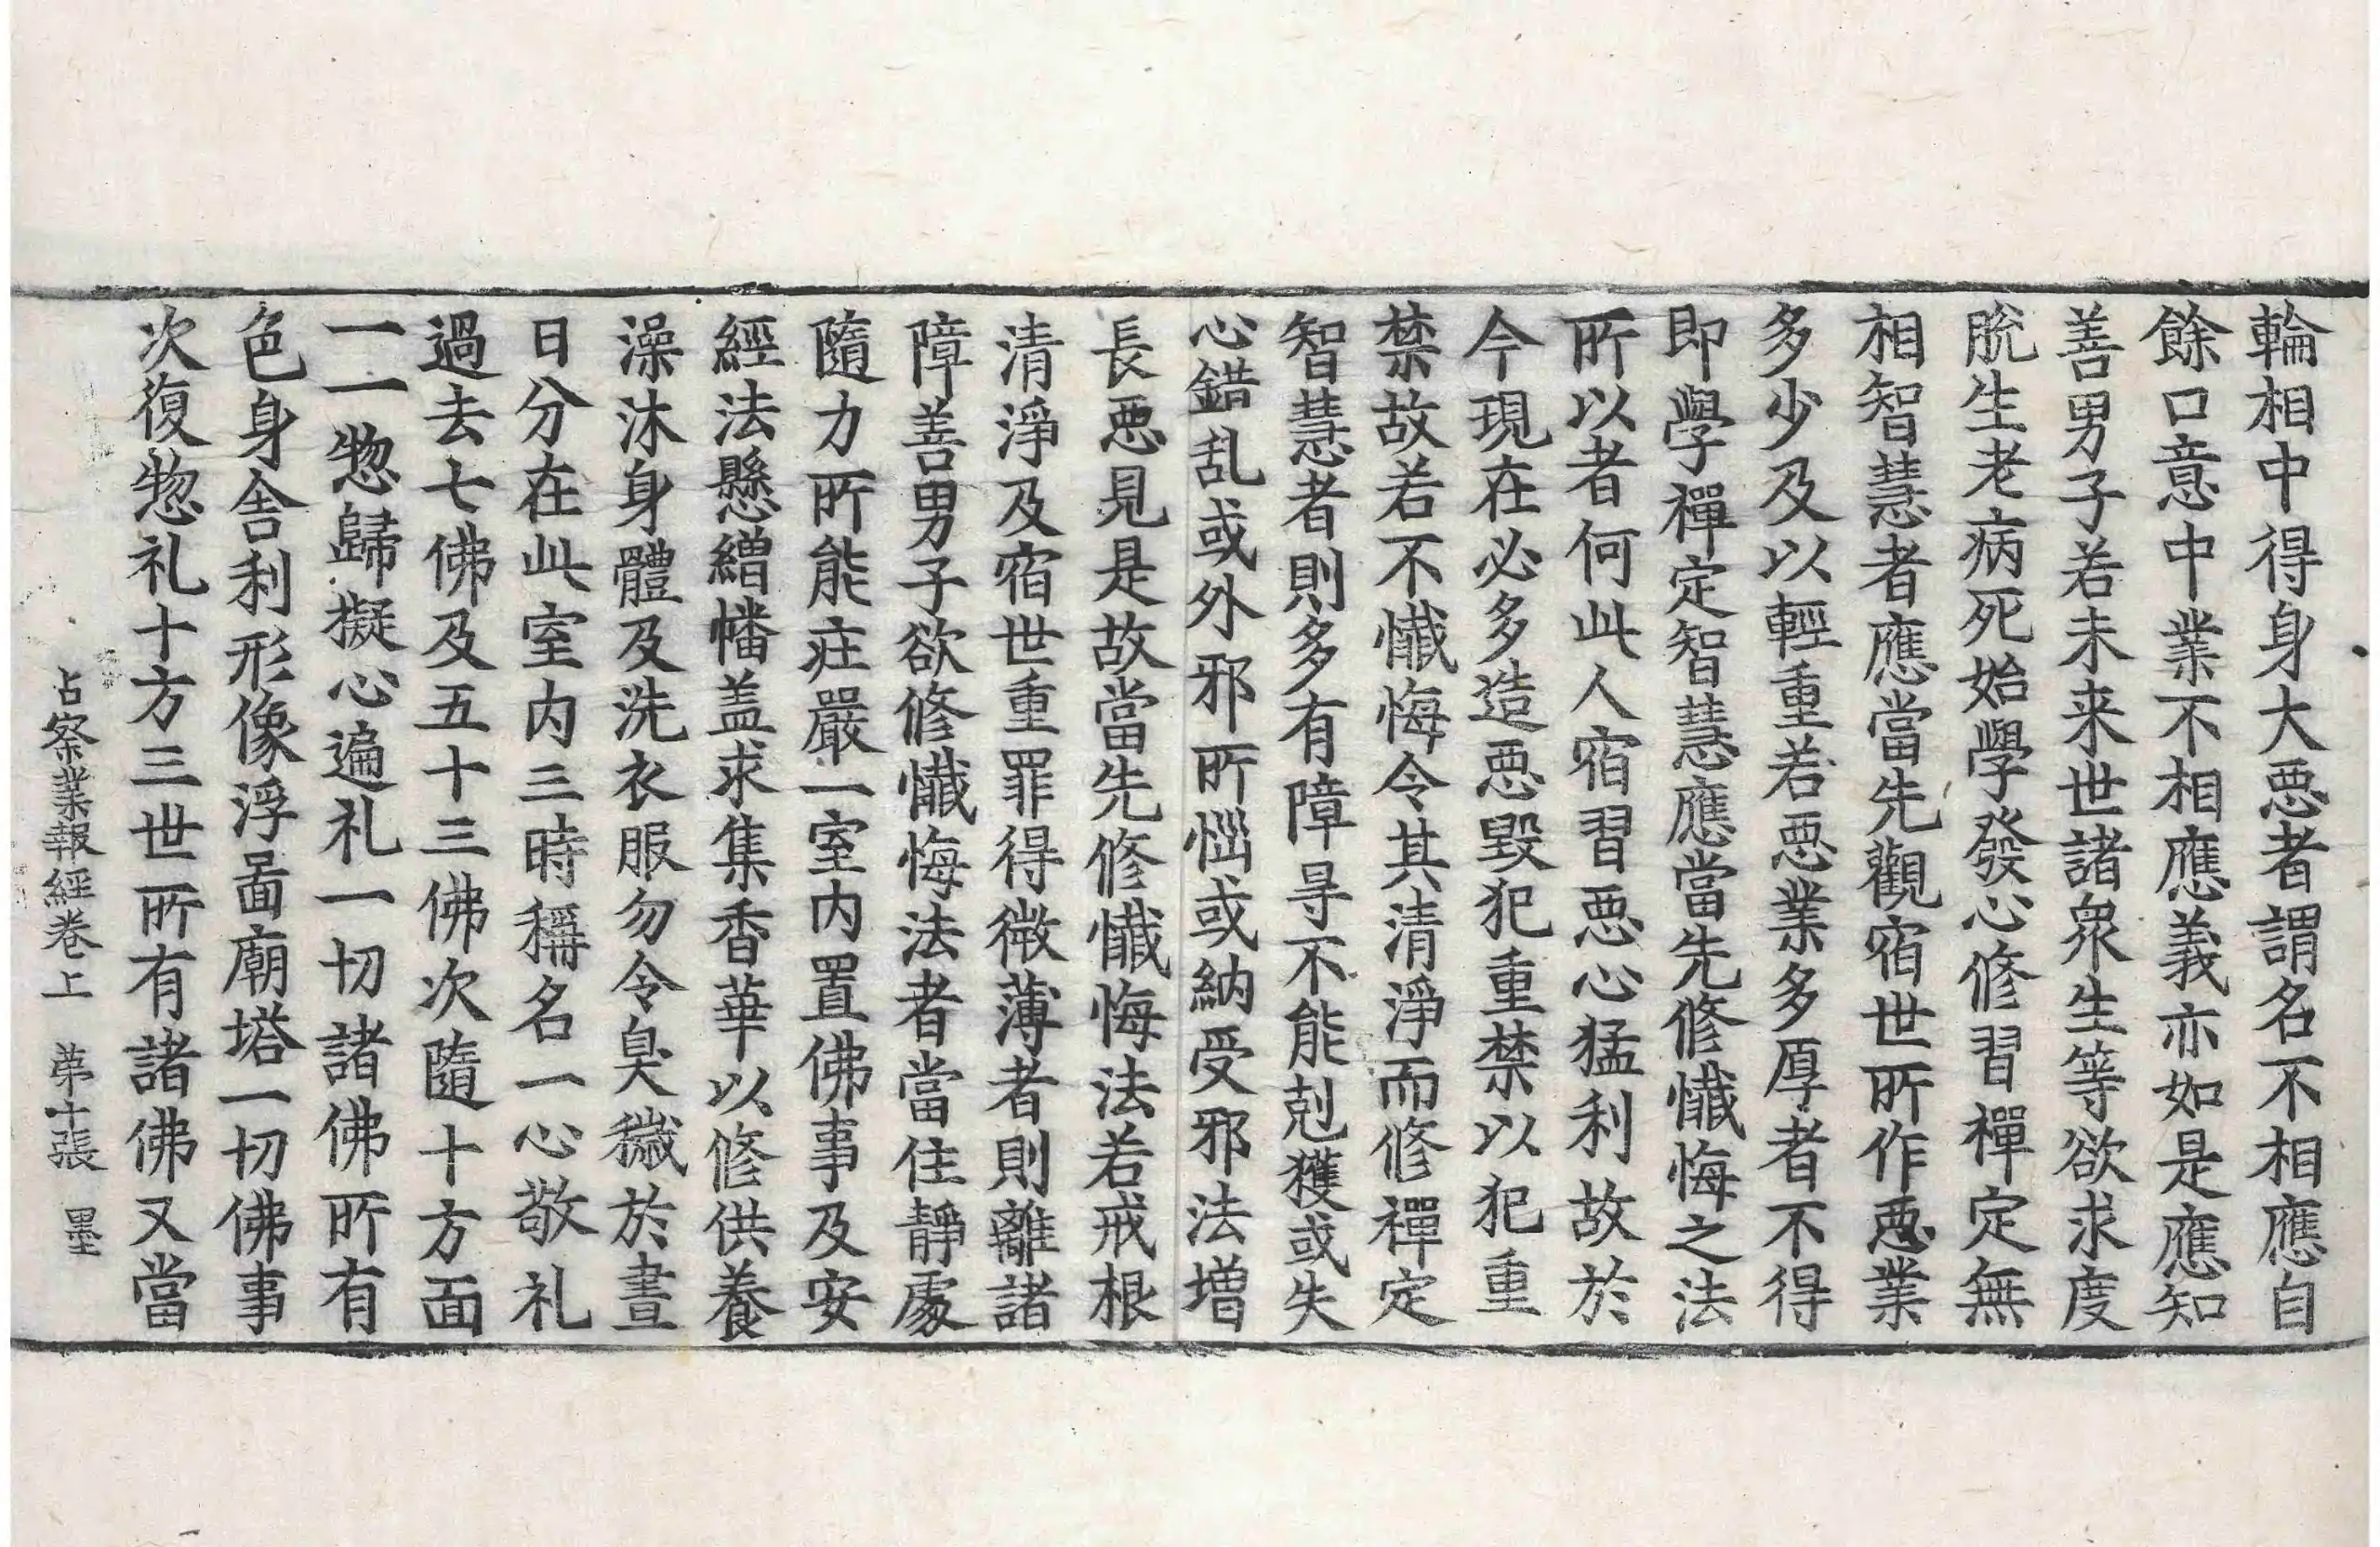 輪相中得身大恶者謂名不相應自
餘口意中業不相應義亦如是應知
善男子若未来世諸衆生等欲求度
脫生老病死始學發心修習禪定無
相智慧者應當先觀宿世所作恶業
多少及以輕重若恶業多厚者不得
即學禪定智慧應當先修懺悔之法
所以者何此人宿習恶心猛利故於
今現在必多造恶毀犯重禁以犯重
禁故若不懺悔令其清淨而修禪定
智慧者則多有障㝵不能剋獲或失
心錯乱或外邪所惱或納受邪法增
長恶見是故當先修懺悔法若戒根
清淨及宿世重罪得微薄者則離諸
障善男子欲修懺悔法者當住靜處
隨力所能庄嚴一室内置佛事及安
經法懸繒幡盖求集香華以修供養
澡沐身體及洗衣服勿令臭穢於晝
日分在此室内三時稱名一心敬礼
過去七佛及五十三佛次隨十方面
一一惣歸擬心遍礼一切諸佛所有
色身舍利形像浮啚廟塔一切佛事
次復惣礼十方三世所有諸佛又當
占察業報經卷上 苐十張 墨